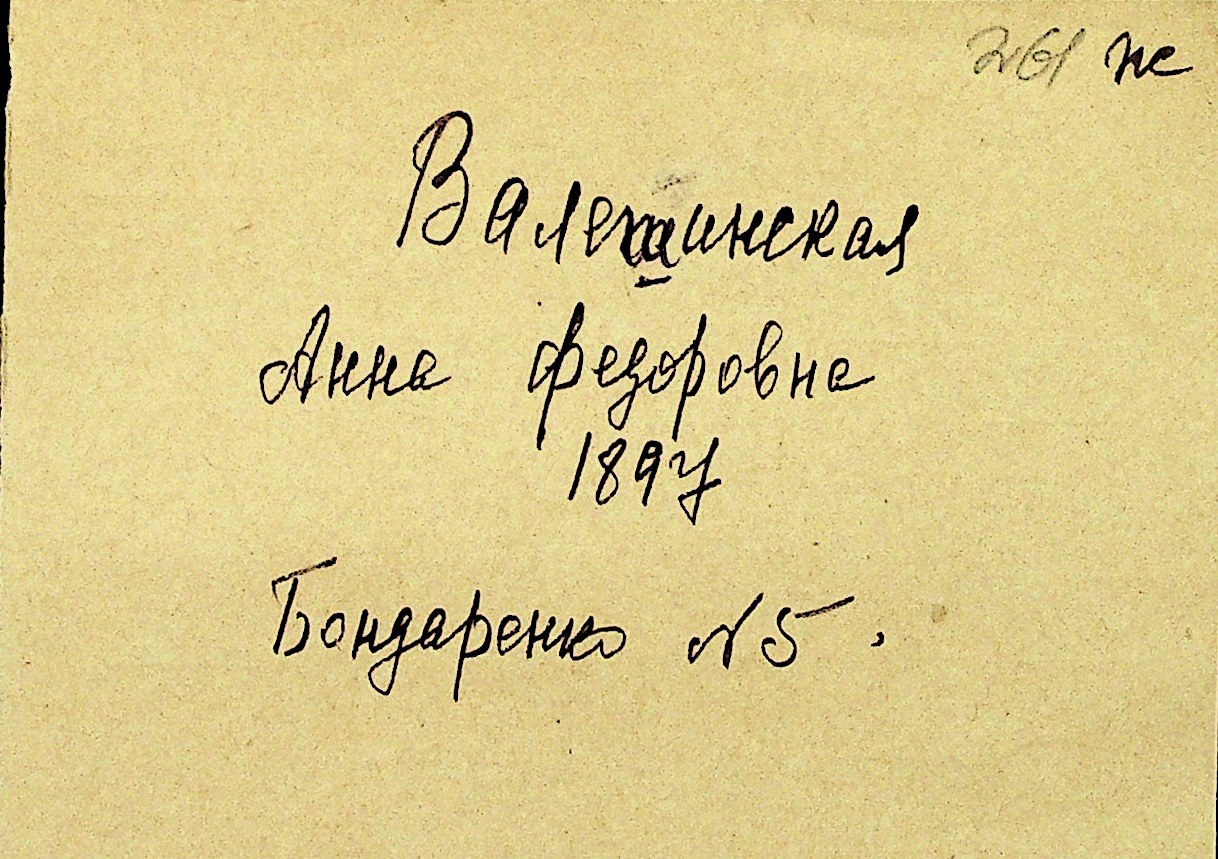 261
Валешинская
Анна Федоровна
1897
Бондаренко №5.